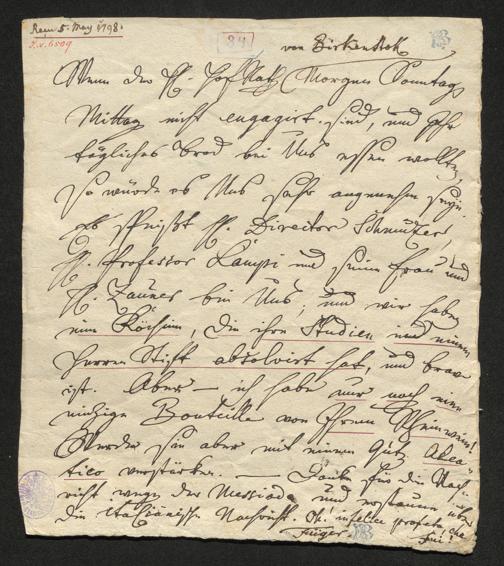 Recu 5. May 1798.
J.N. 6509
84
von Birkenstock
Wenn der H. Hof Rath Morgen Sonntag
Mittag nicht engagirt sind, und Ihr
tägliches Brod bei Uns essen wollten
so würde es Uns sehr angenehm seyn.
es speisst H. Director Schmutzer,
H. Professor Lampi und seine Frau und
H. Zauner bei Uns; und wir haben
eine Köchinn, die ihre Studien in einem
Herren Stift absolvirt hat, und brav
ist. Aber — ich habe nur noch eine
einzige Bouteille von Ihrem Rheinwein!
Werde sie aber mit einem Gutz Alea-
tico verstärken. — Danke für die Nach-
richt wegen der Messiade und erstaune über
die Italiänische Nachricht. Oh! infelice profeta, che
Füger